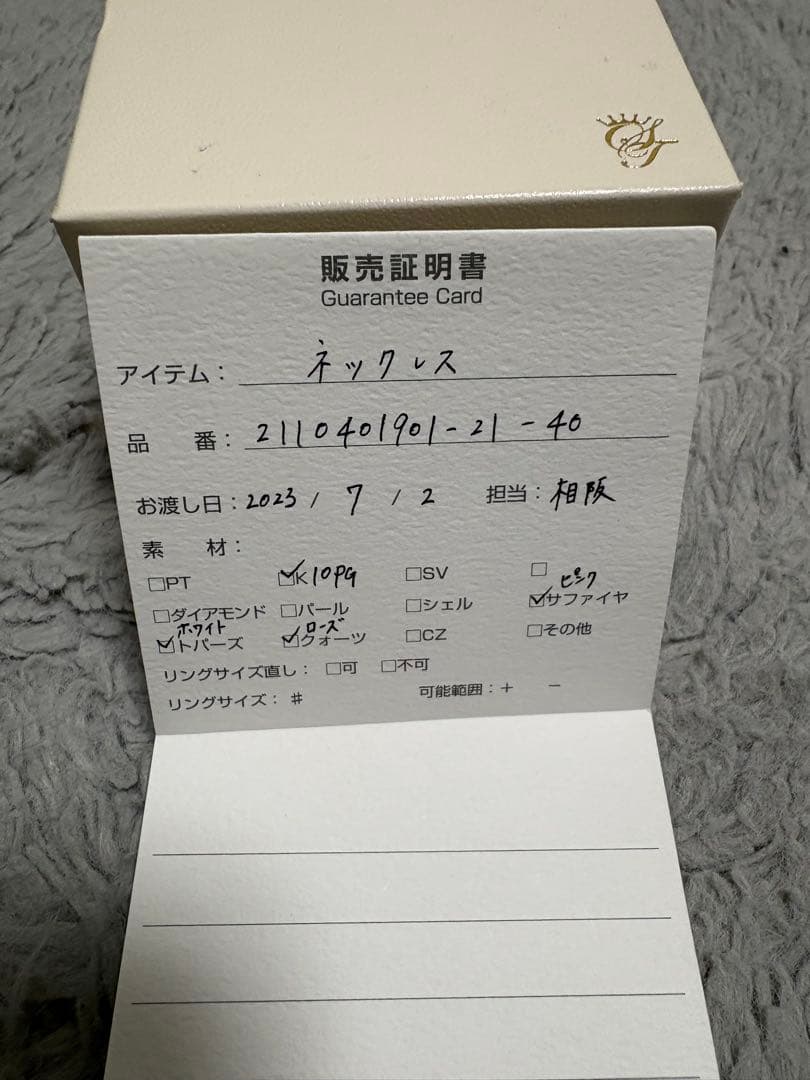 販売証明書
Guarantee Card
アイテム： ネックレス
品　番： 2110401901-21-40
お渡し日：2023 / 7 / 2　担当：相阪
素　材：
□PT ☑K10PG □SV □
□ダイアモンド □パール □シェル ☑ピンクサファイヤ
☑ホワイトトパーズ ☑ローズクォーツ □CZ □その他
リングサイズ直し： □可 □不可
リングサイズ： ♯ 可能範囲：＋ －